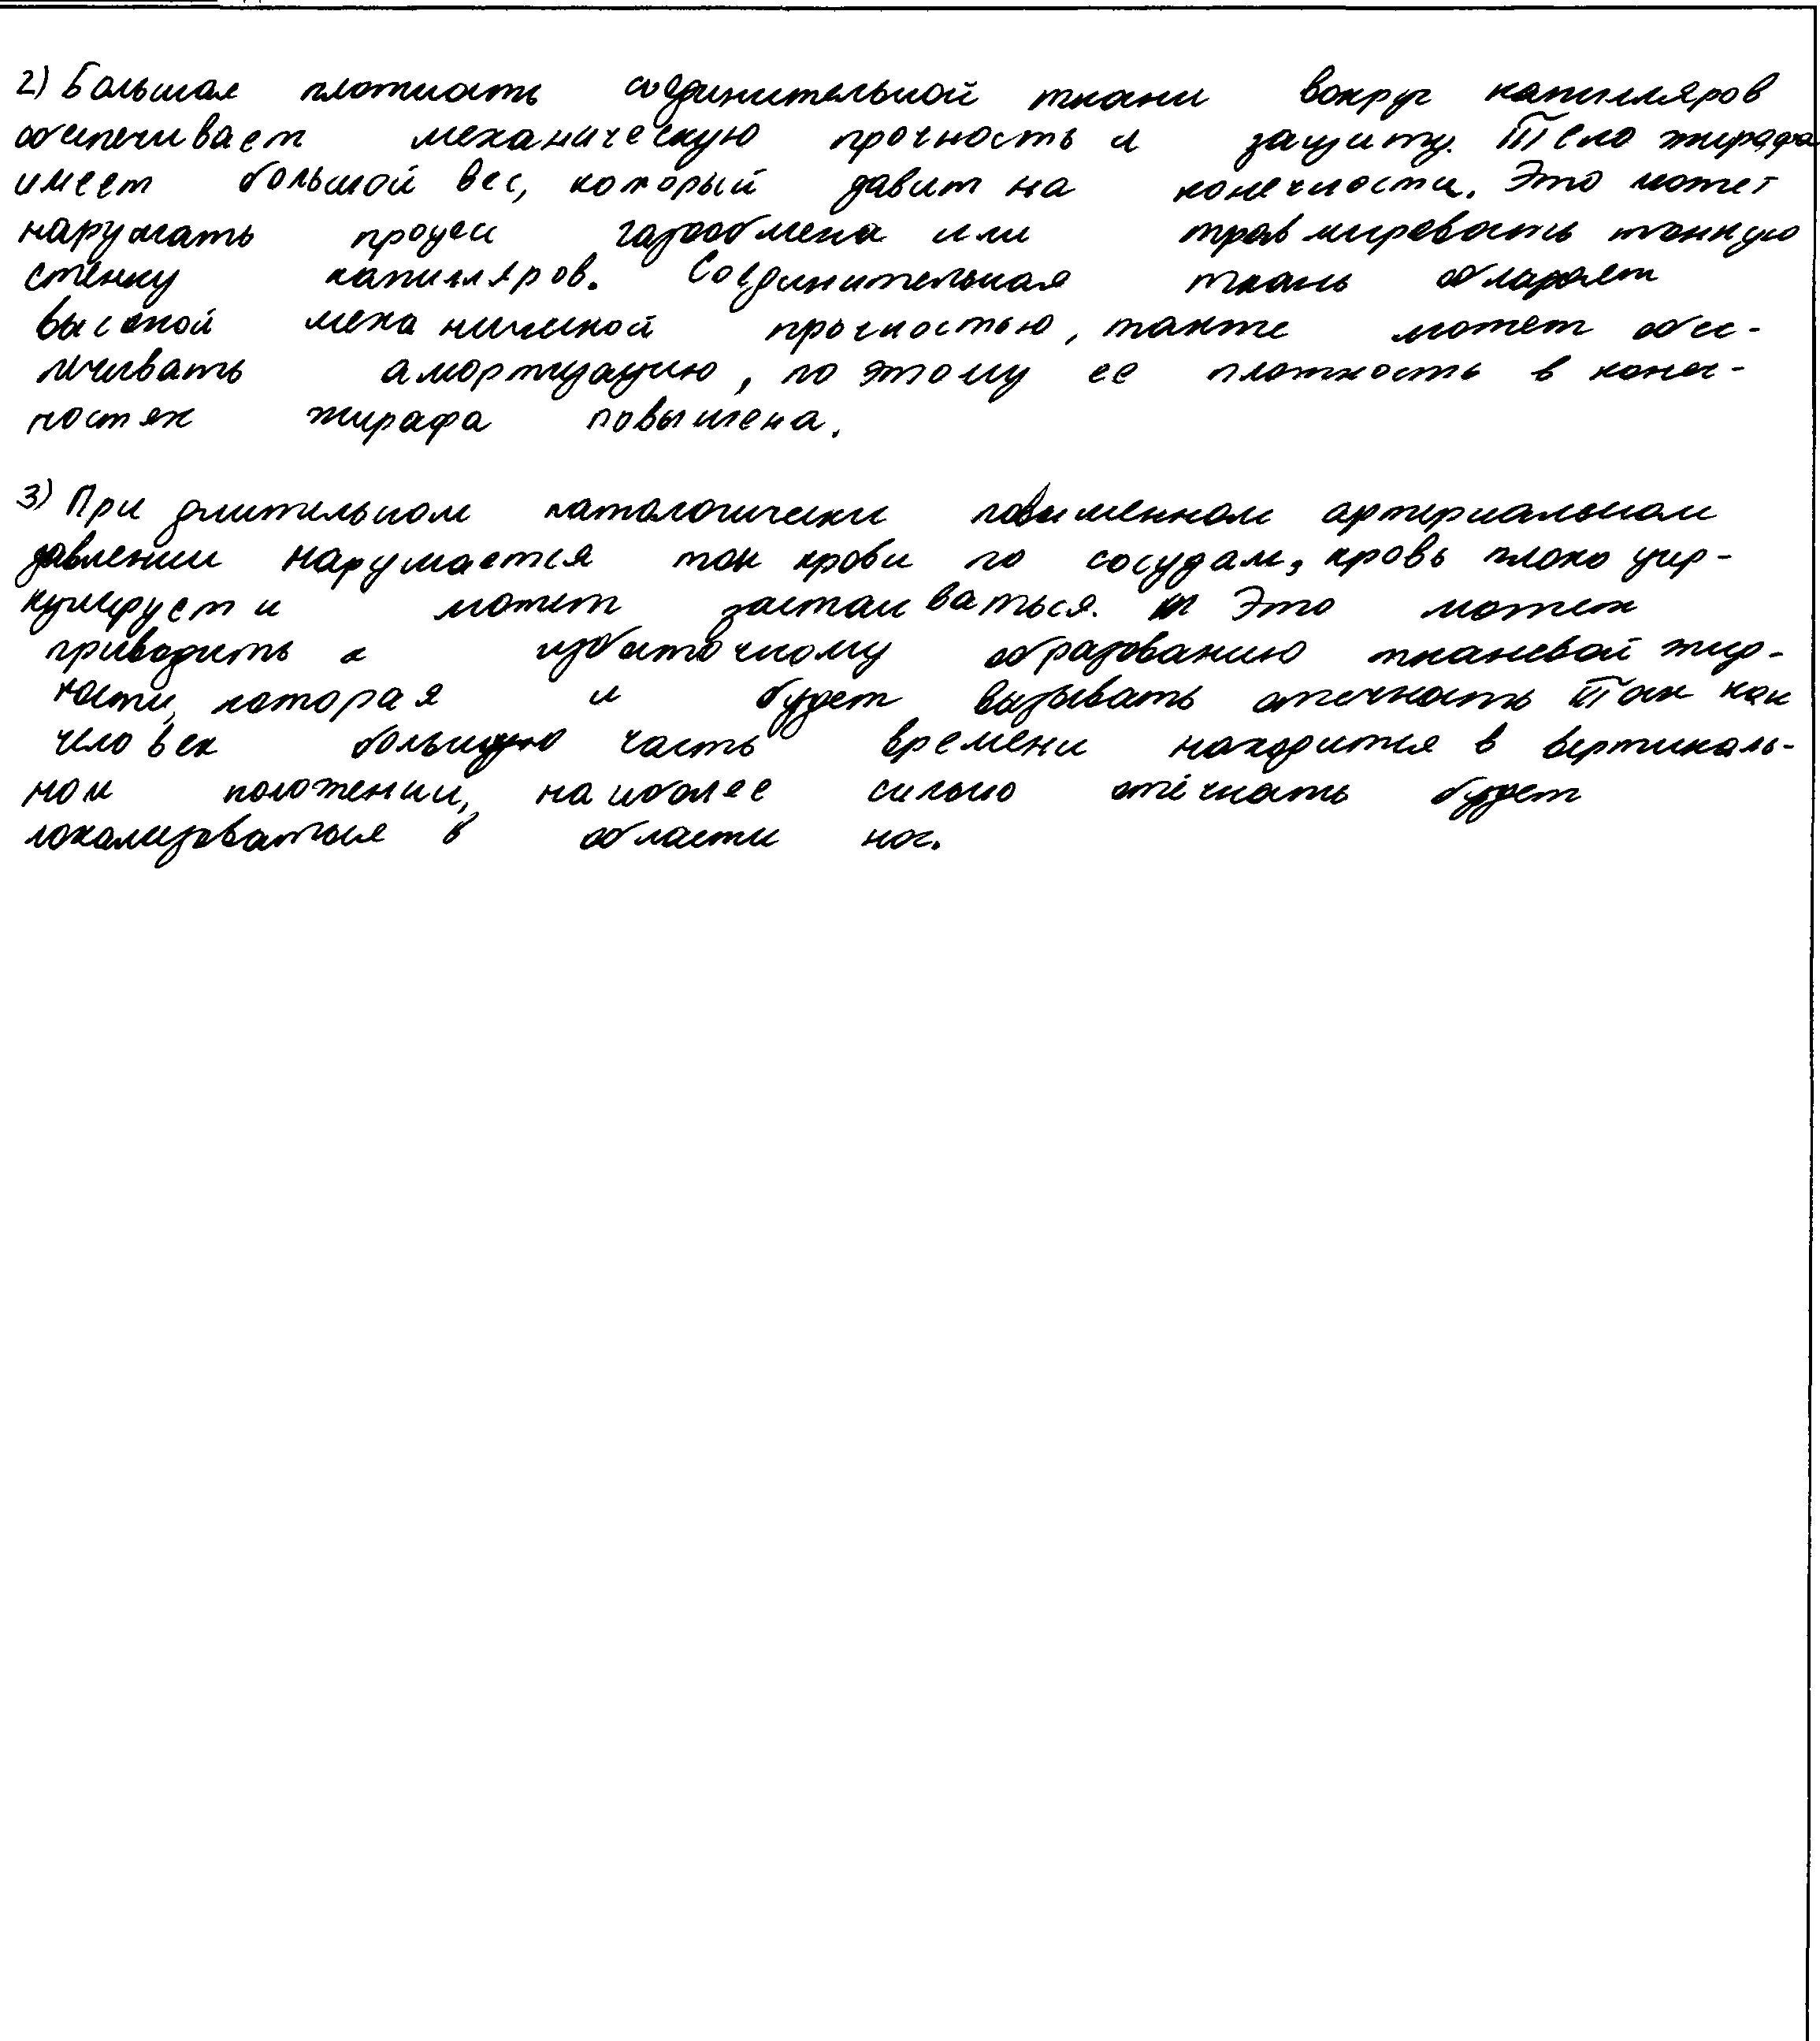 2) Большая плотность соединительной ткани вокруг капилляров
обеспечивает механическую прочность и защиту. Тело жирафа
имеет большой вес, который давит на конечности. Это может
нарушать процесс газообмена или травмировать тонкую
стенку капилляров. Соединительная ткань обладает
высокой механической прочностью, также может обес-
печивать амортизацию, по этому ее плотность в конеч-
ностях жирафа повышена.
3) При длительном патологически повышенном артериальном
давлении нарушается ток крови по сосудам, кровь плохо цир-
кулирует и может застаиваться. Это может
приводить к избыточному образованию тканевой жид-
кости, которая и будет вызывать отечность Так как
человек большую часть времени находится в вертикаль-
ном положении, наиболее сильно отёчность будет
локализоваться в области ног.